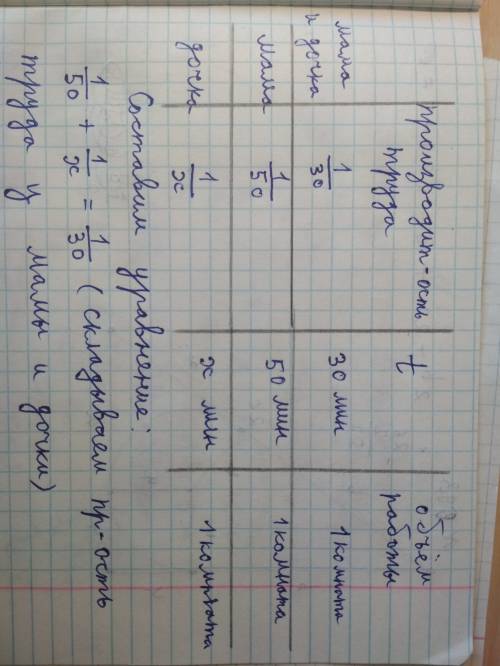 производит-ость труда t объём работы
мама и дочка 1/30 30 мин 1 комната
мама 1/50 50 мин 1 комната
дочка 1/x x мин 1 комната
Составим уравнение:
1/50 + 1/x = 1/30 (складываем пр-ость
труда у мамы и дочки)